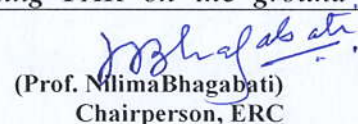 on the ground,
Bhagabati
(Prof. NilimaBhagabati)
Chairperson, ERC